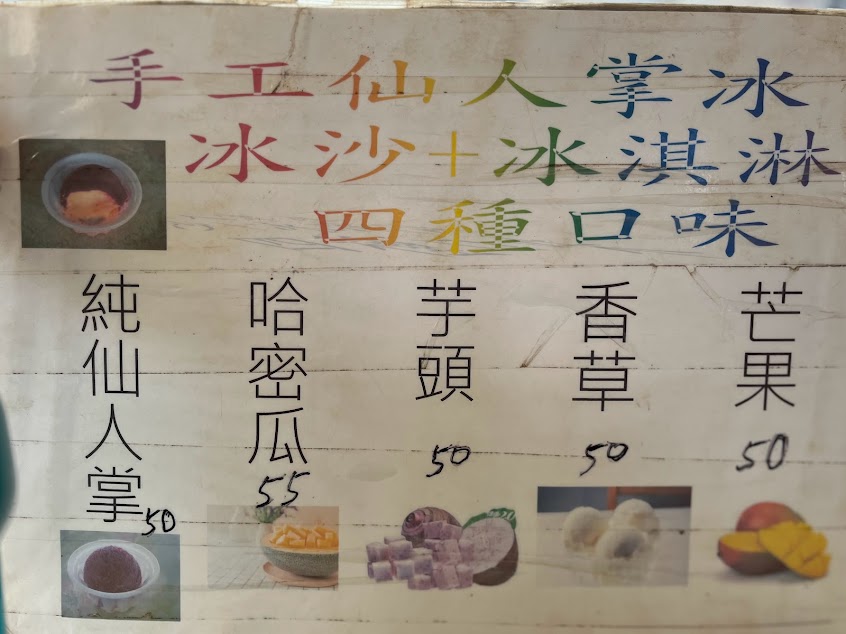 手工仙人掌冰
冰沙+冰淇淋
四種口味
純仙人掌 50
哈密瓜 55
芋頭 50
香草 50
芒果 50